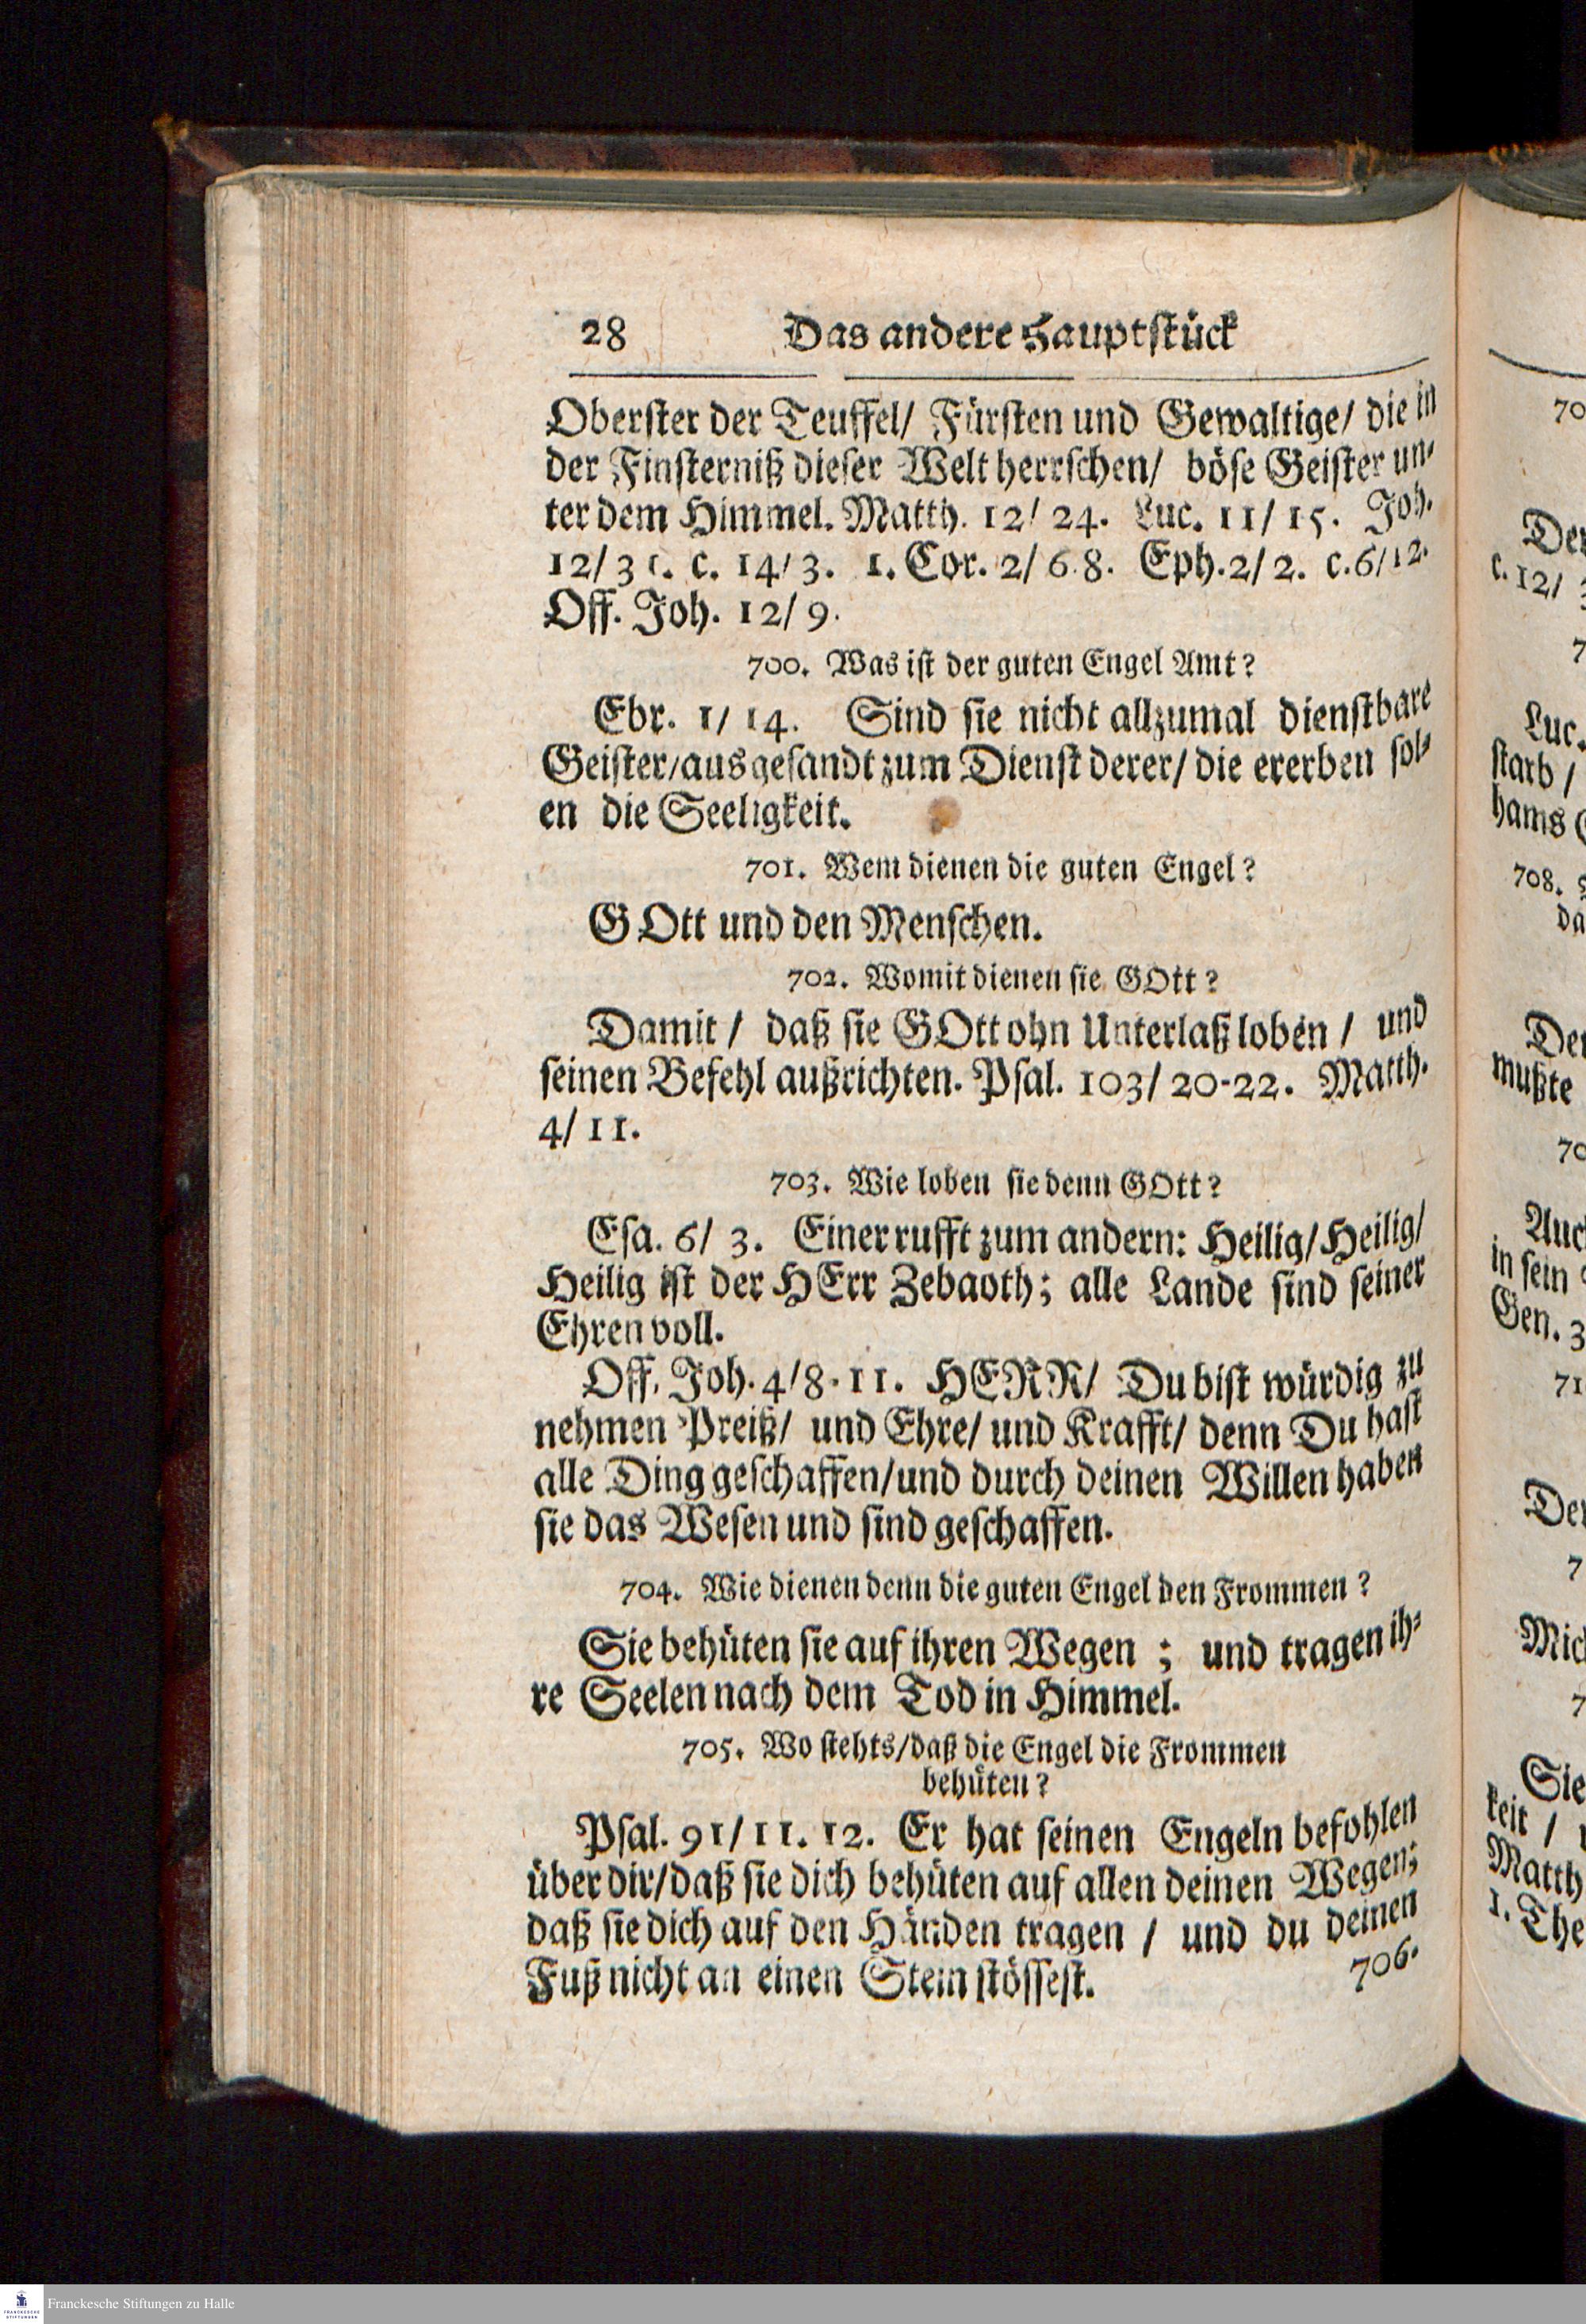 28 Das andere Hauptstück
Oberster der Teuffel/ Fürsten und Gewaltige/ die in
der Finsterniß dieser Welt herrschen/ böse Geister un-
ter dem Himmel. Matth. 12/ 24. Luc. 11/ 15. Joh.
12/ 31. c. 14/ 3. 1. Cor. 2/ 6. 8. Eph. 2/ 2. c. 6/ 12.
Off. Joh. 12/ 9.
700. Was ist der guten Engel Amt?
Ebr. 1/ 14. Sind sie nicht allzumal dienstbare
Geister/ ausgesandt zum Dienst derer/ die ererben sol-
en die Seeligkeit.
701. Wem dienen die guten Engel?
GOtt und den Menschen.
702. Womit dienen sie GOtt?
Damit / daß sie GOtt ohn Unterlaß loben / und
seinen Befehl außrichten. Psal. 103/ 20-22. Matth.
4/ 11.
703. Wie loben sie denn GOtt?
Esa. 6/ 3. Einer rufft zum andern: Heilig/ Heilig/
Heilig ist der HErr Zebaoth; alle Lande sind seiner
Ehren voll.
Off. Joh. 4/ 8-11. HERR/ Du bist würdig zu
nehmen Preiß/ und Ehre/ und Krafft/ denn Du hast
alle Ding geschaffen/ und durch deinen Willen haben
sie das Wesen und sind geschaffen.
704. Wie dienen denn die guten Engel den Frommen?
Sie behüten sie auf ihren Wegen ; und tragen ih-
re Seelen nach dem Tod in Himmel.
705. Wo stehts/ daß die Engel die Frommen
behüten?
Psal. 91/ 11. 12. Er hat seinen Engeln befohlen
über dir/ daß sie dich behüten auf allen deinen Wegen;
daß sie dich auf den Händen tragen / und du deinen
Fuß nicht an einen Stein stössest.
706.
70
Der
c. 12/
7
Luc.
starb /
hams
708.
da
Der
mußte
70
Auch
in sein
Gen. 3
71
Der
7
Mic
7
Sie
keit /
Matth
1. The
Franckesche Stiftungen zu Halle